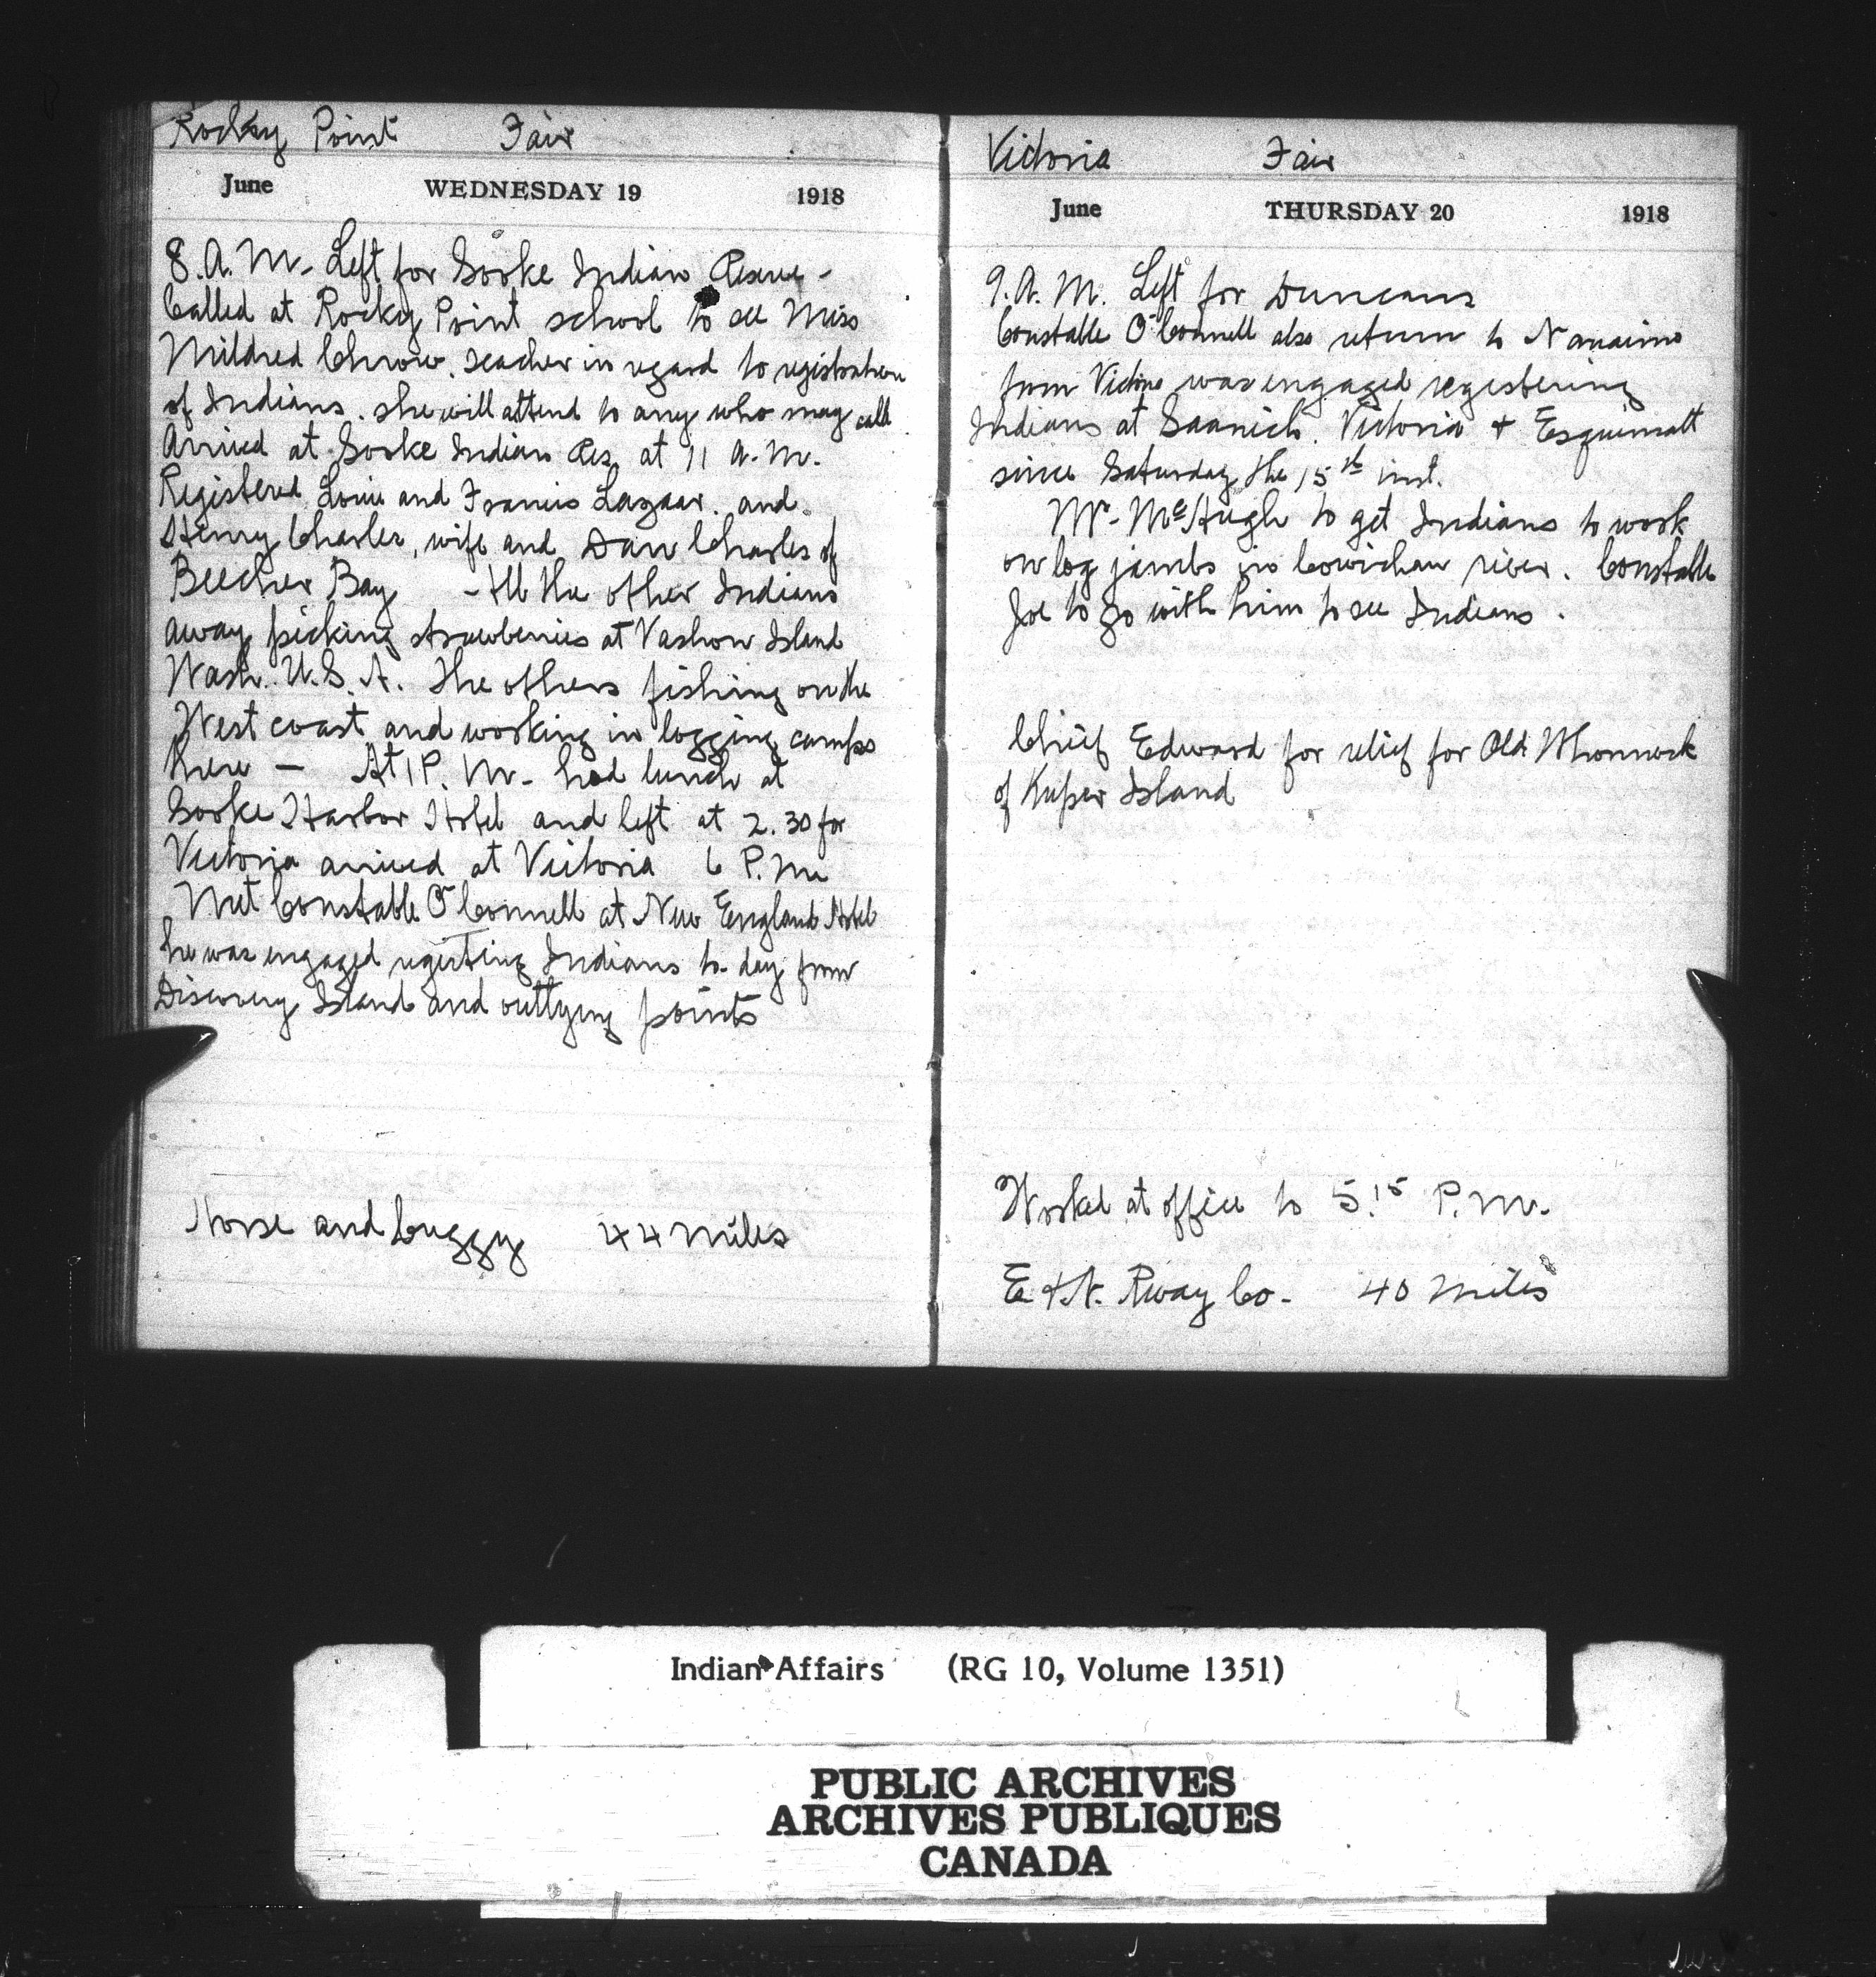 Rocky Point Fair
June WEDNESDAY 19 1918
8. A. M. Left for Sooke Indian Reserve -
Called at Rocky Point school to see Miss
Mildred teacher in regard to registration
of Indians. she will attend to any who may call
Arrived at Sooke Indian Res. at 11 A. M.
Registered Louie and Francis Lazaar. and
Henry Charles, wife and Dan Charles of
Beecher Bay - All the other Indians
away picking strawberries at Vashon Island
Wash. U. S. A. The others fishing on the
West coast and working in logging camps
here — At 1 P. M. had lunch at
Sooke Harbor Hotel and left at 2.30 for
Victoria arrived at Victoria 6 P. M.
Met Constable O'Connell at New England Hotel
he was engaged Indians to-day from
Discovery Island and outlying points
Horse and buggy 44 miles
Victoria Fair
June THURSDAY 20 1918
9. A. M. Left for Duncans
Constable O'Connell also return to Nanaimo
from Victoria was engaged registering
Indians at Saanich. Victoria + Esquimalt
since Saturday the 15th inst.
Mr. McHugh to get Indians to work
on log jambs in Cowichan river. Constable
Joe to go with him to see Indians.
Chief Edward for relief for Old
of Kuper Island
Worked at office to 5.15 P. M.
E + N. Rway Co. 40 miles
Indian Affairs (RG 10, Volume 1351)
PUBLIC ARCHIVES
ARCHIVES PUBLIQUES
CANADA